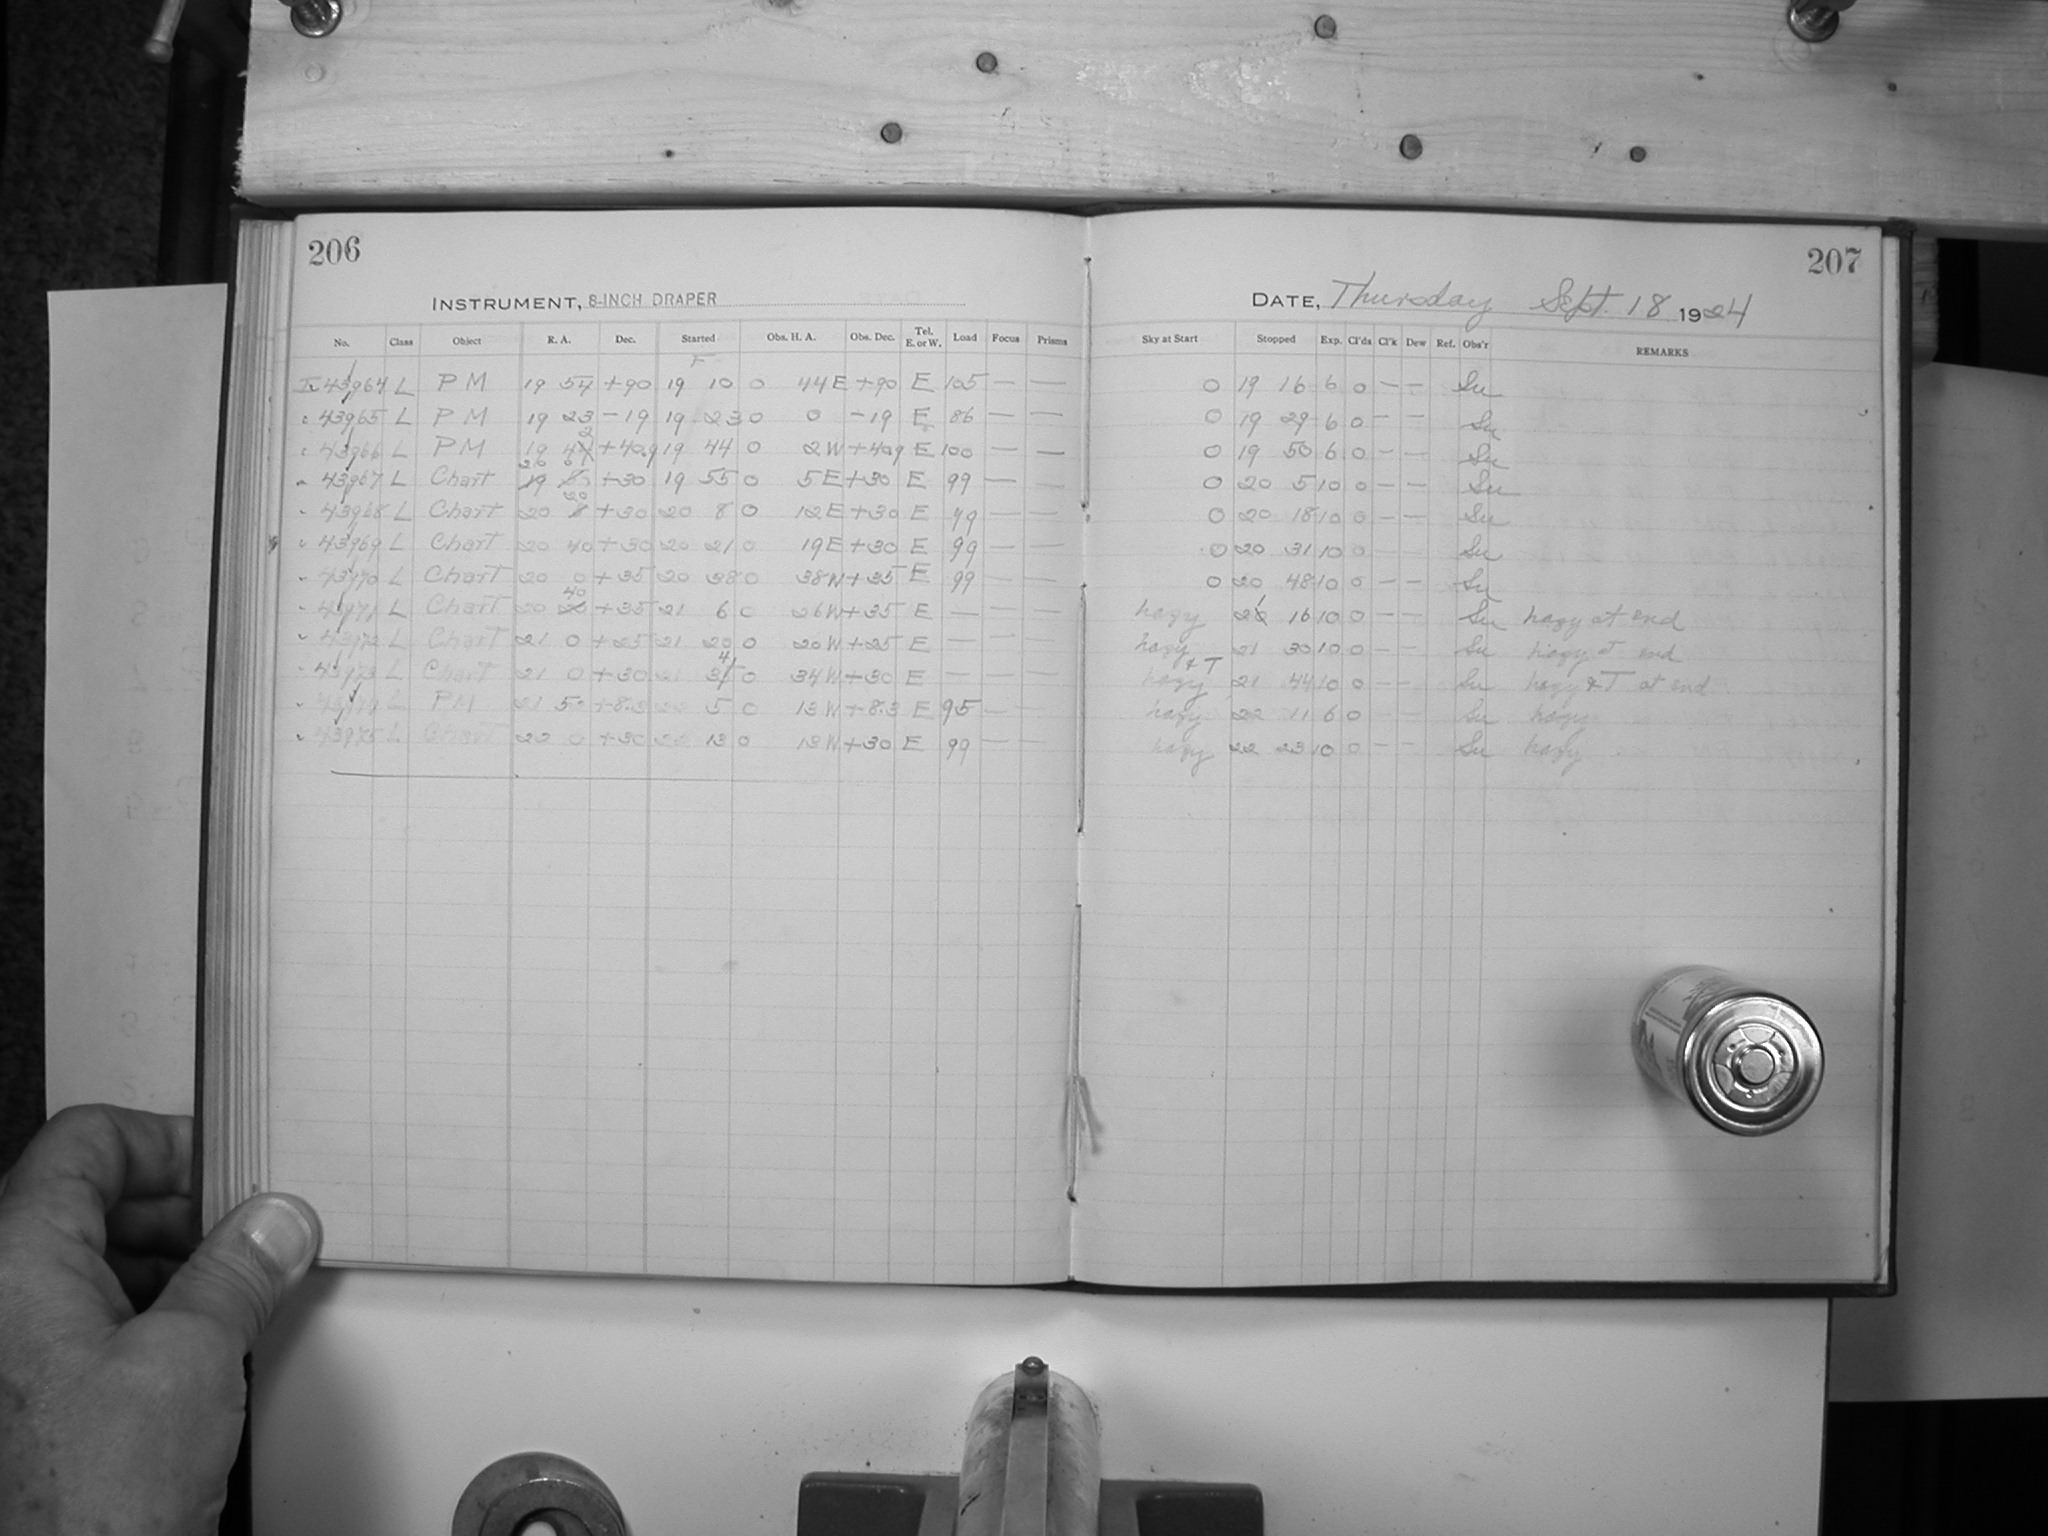 206
207
INSTRUMENT, 8-INCH DRAPER
DATE, Thursday Sept. 18 1924
No. Class Object R. A. Dec. Started Obs. H. A. Obs. Dec. Tel. E. or W. Load Focus Prisms Sky at Start Stopped Exp. Cl'ds Cl'k Dew Ref. Obs'r REMARKS
43964 L PM 19 54 +90 19 10 0 44E +90 E 105 — — 0 19 16 6 0 — — Su
43965 L PM 19 23 -19 19 23 0 0 -19 E 86 — — 0 19 29 6 0 — — Su
43966 L PM 19 42 +40.9 19 44 0 2W +40.9 E 100 — — 0 19 50 6 0 — — Su
43967 L Chart 20 0 +30 19 55 0 5E +30 E 99 — — 0 20 5 10 0 — — Su
43968 L Chart 20 20 +30 20 8 0 12E +30 E 99 — — 0 20 18 10 0 — — Su
43969 L Chart 20 40 +30 20 21 0 19E +30 E 99 — — 0 20 31 10 0 — — Su
43970 L Chart 20 0 +35 20 38 0 38W +35 E 99 — — 0 20 48 10 0 — — Su
43971 L Chart 20 40 +35 21 6 0 26W +35 E — — — hazy 21 16 10 0 — — Su hazy at end
43972 L Chart 21 0 +25 21 20 0 20W +25 E — — — hazy 21 30 10 0 — — Su hazy at end
43973 L Chart 21 0 +30 21 34 0 34W +30 E — — — hazy & T 21 44 10 0 — — Su hazy & T at end
43974 L PM 21 5 +8.3 22 5 0 13W +8.3 E 95 — — hazy 22 11 6 0 — — Su hazy
43975 L Chart 22 0 +30 22 13 0 13W +30 E 99 — — hazy 22 23 10 0 — — Su hazy